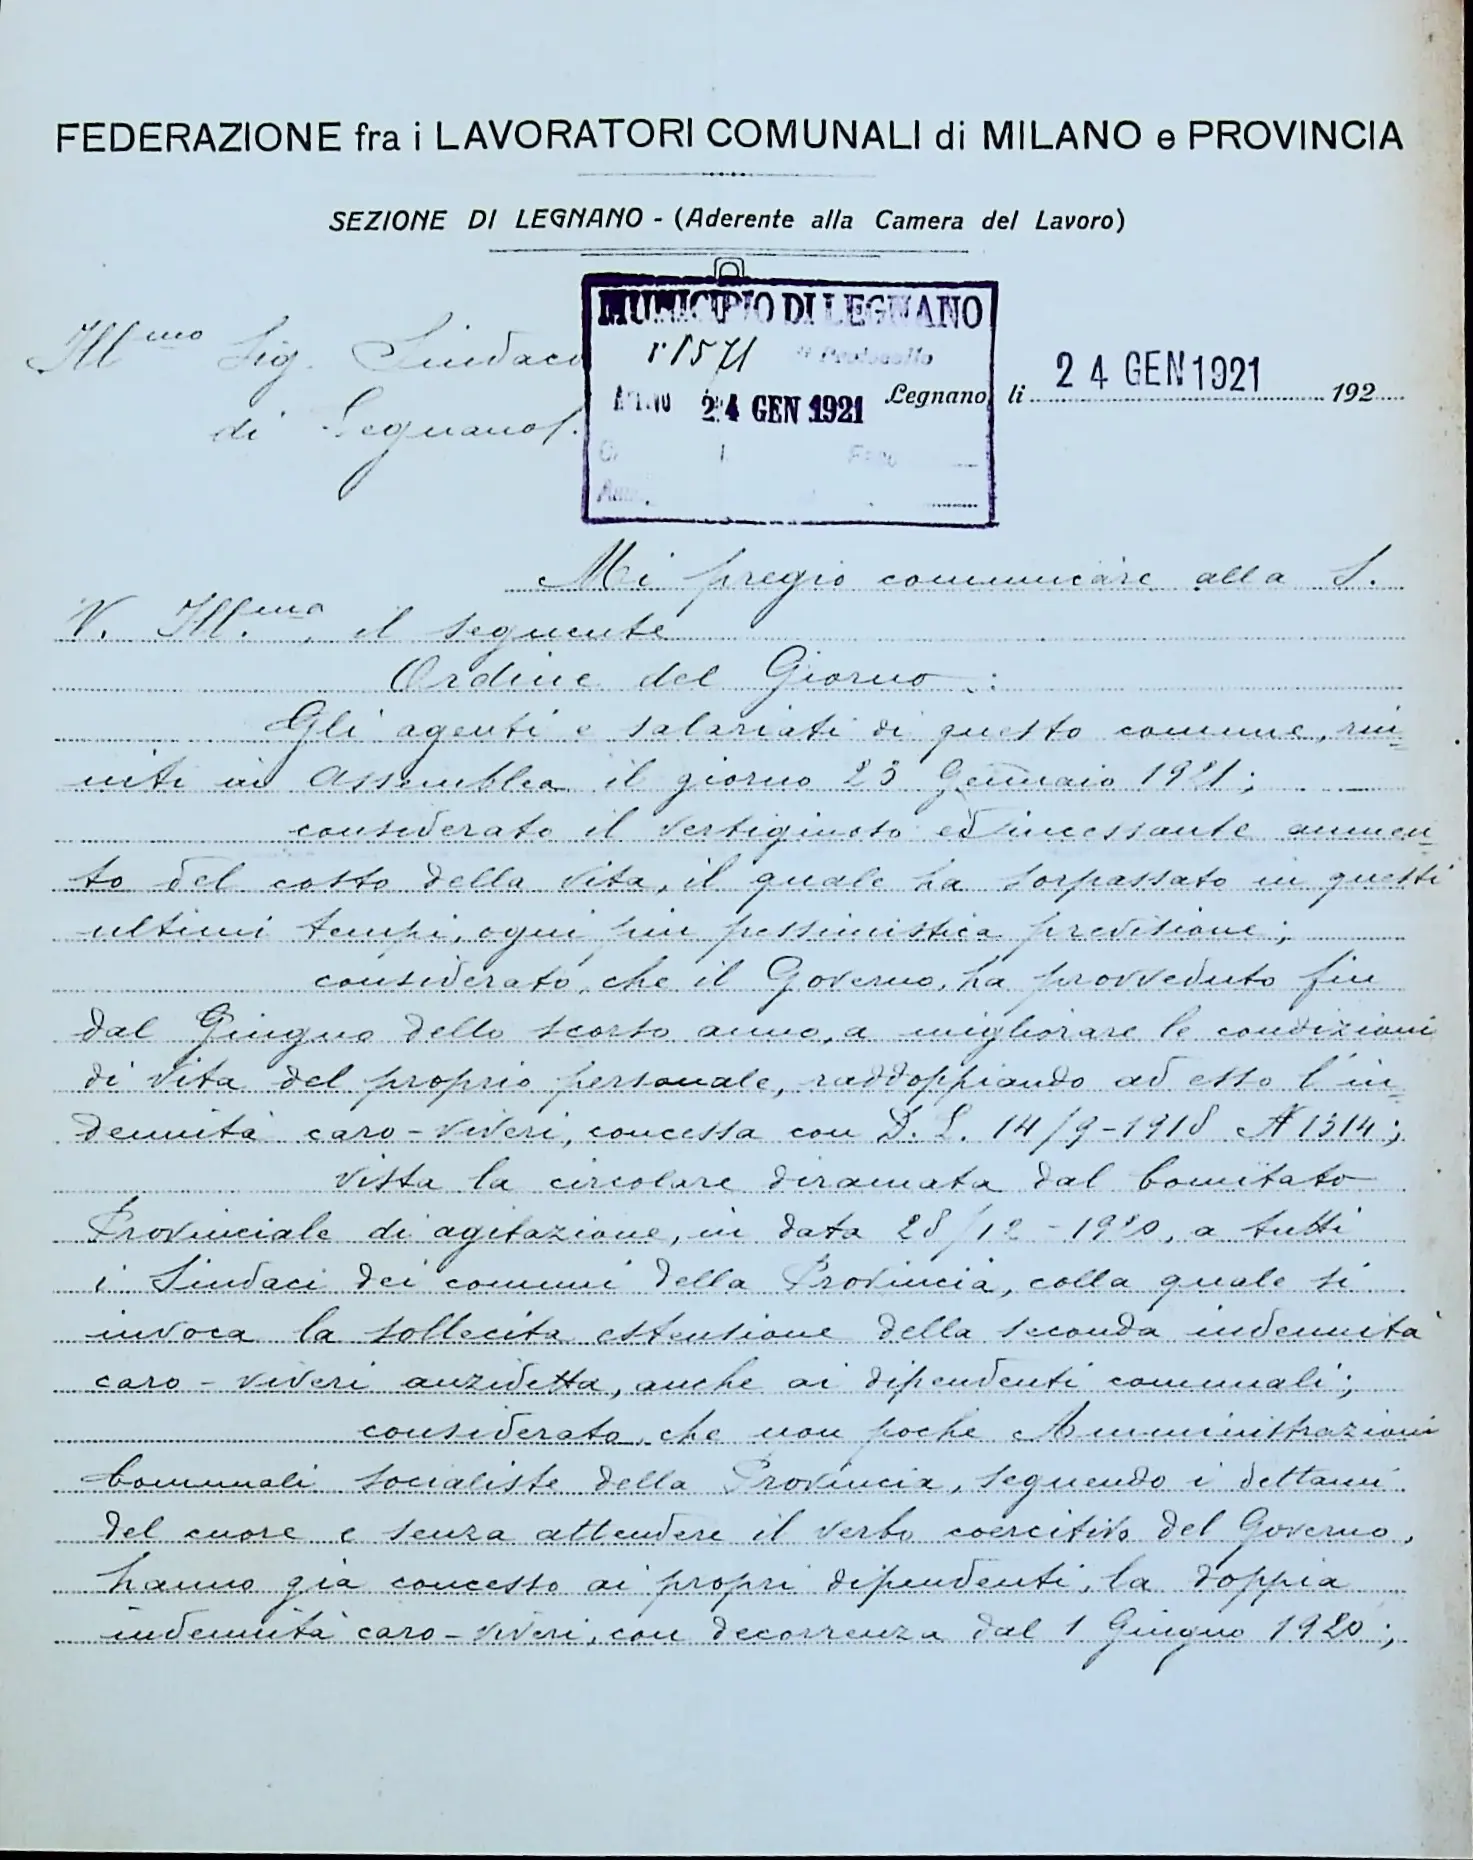 FEDERAZIONE fra i LAVORATORI COMUNALI di MILANO e PROVINCIA
SEZIONE DI LEGNANO - (Aderente alla Camera del Lavoro)
Ill.mo Sig. Sindaco
di Legnano.
MUNICIPIO DI LEGNANO
1571 Protocollo
24 GEN 1921
Legnano, li 24 GEN 1921 192
Mi pregio comunicare alla S.
V. Ill.ma, il seguente
Ordine del Giorno:
Gli agenti e salariati di questo comune, riu-
niti in Assemblea il giorno 23 Gennaio 1921;
considerato il vertiginoso ed incessante aumen-
to del costo della vita, il quale ha sorpassato in questi
ultimi tempi, ogni più pessimistica previsione;
considerato, che il Governo, ha provveduto fin
dal Giugno dello scorso anno, a migliorare le condizioni
di vita del proprio personale, raddoppiando ad esso l'in-
dennità caro-viveri, concessa con D. L. 14/9-1918 N 1314;
vista la circolare diramata dal Comitato
Provinciale di agitazione, in data 28/12-1920, a tutti
i Sindaci dei comuni della Provincia, colla quale si
invoca la sollecita estensione della seconda indennità
caro-viveri anzidetta, anche ai dipendenti comunali;
considerato, che non poche Amministrazioni
Comunali socialiste della Provincia, seguendo i dettami
del cuore e senza attendere il verbo coercitivo del Governo,
hanno già concesso ai propri dipendenti, la doppia
indennità caro-viveri, con decorrenza dal 1 Giugno 1920;